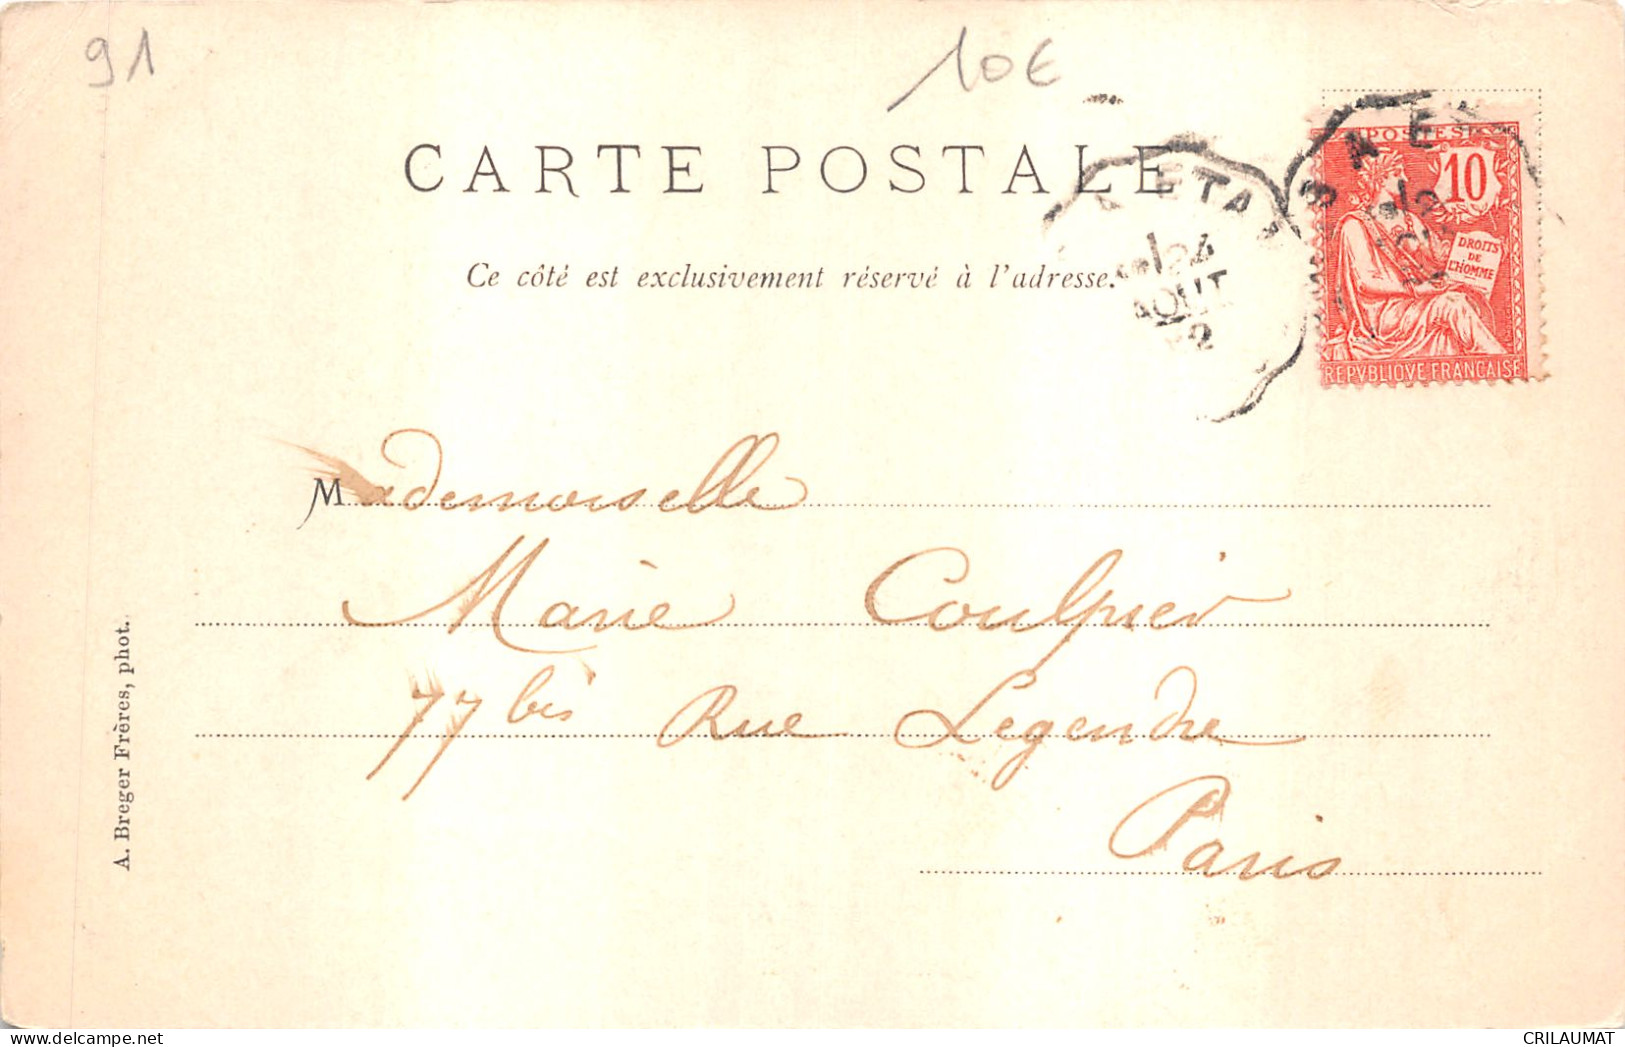 91
10€
CARTE POSTALE
Ce côté est exclusivement réservé à l'adresse.
POSTES
10
DROITS
DE
L'HOMME
REPVBLIQVE FRANCAISE
ETA
24
AOUT
Mademoiselle
Marie Coulpier
77 bis Rue Legendre
Paris
A. Breger Frères, phot.
CRILAUMAT